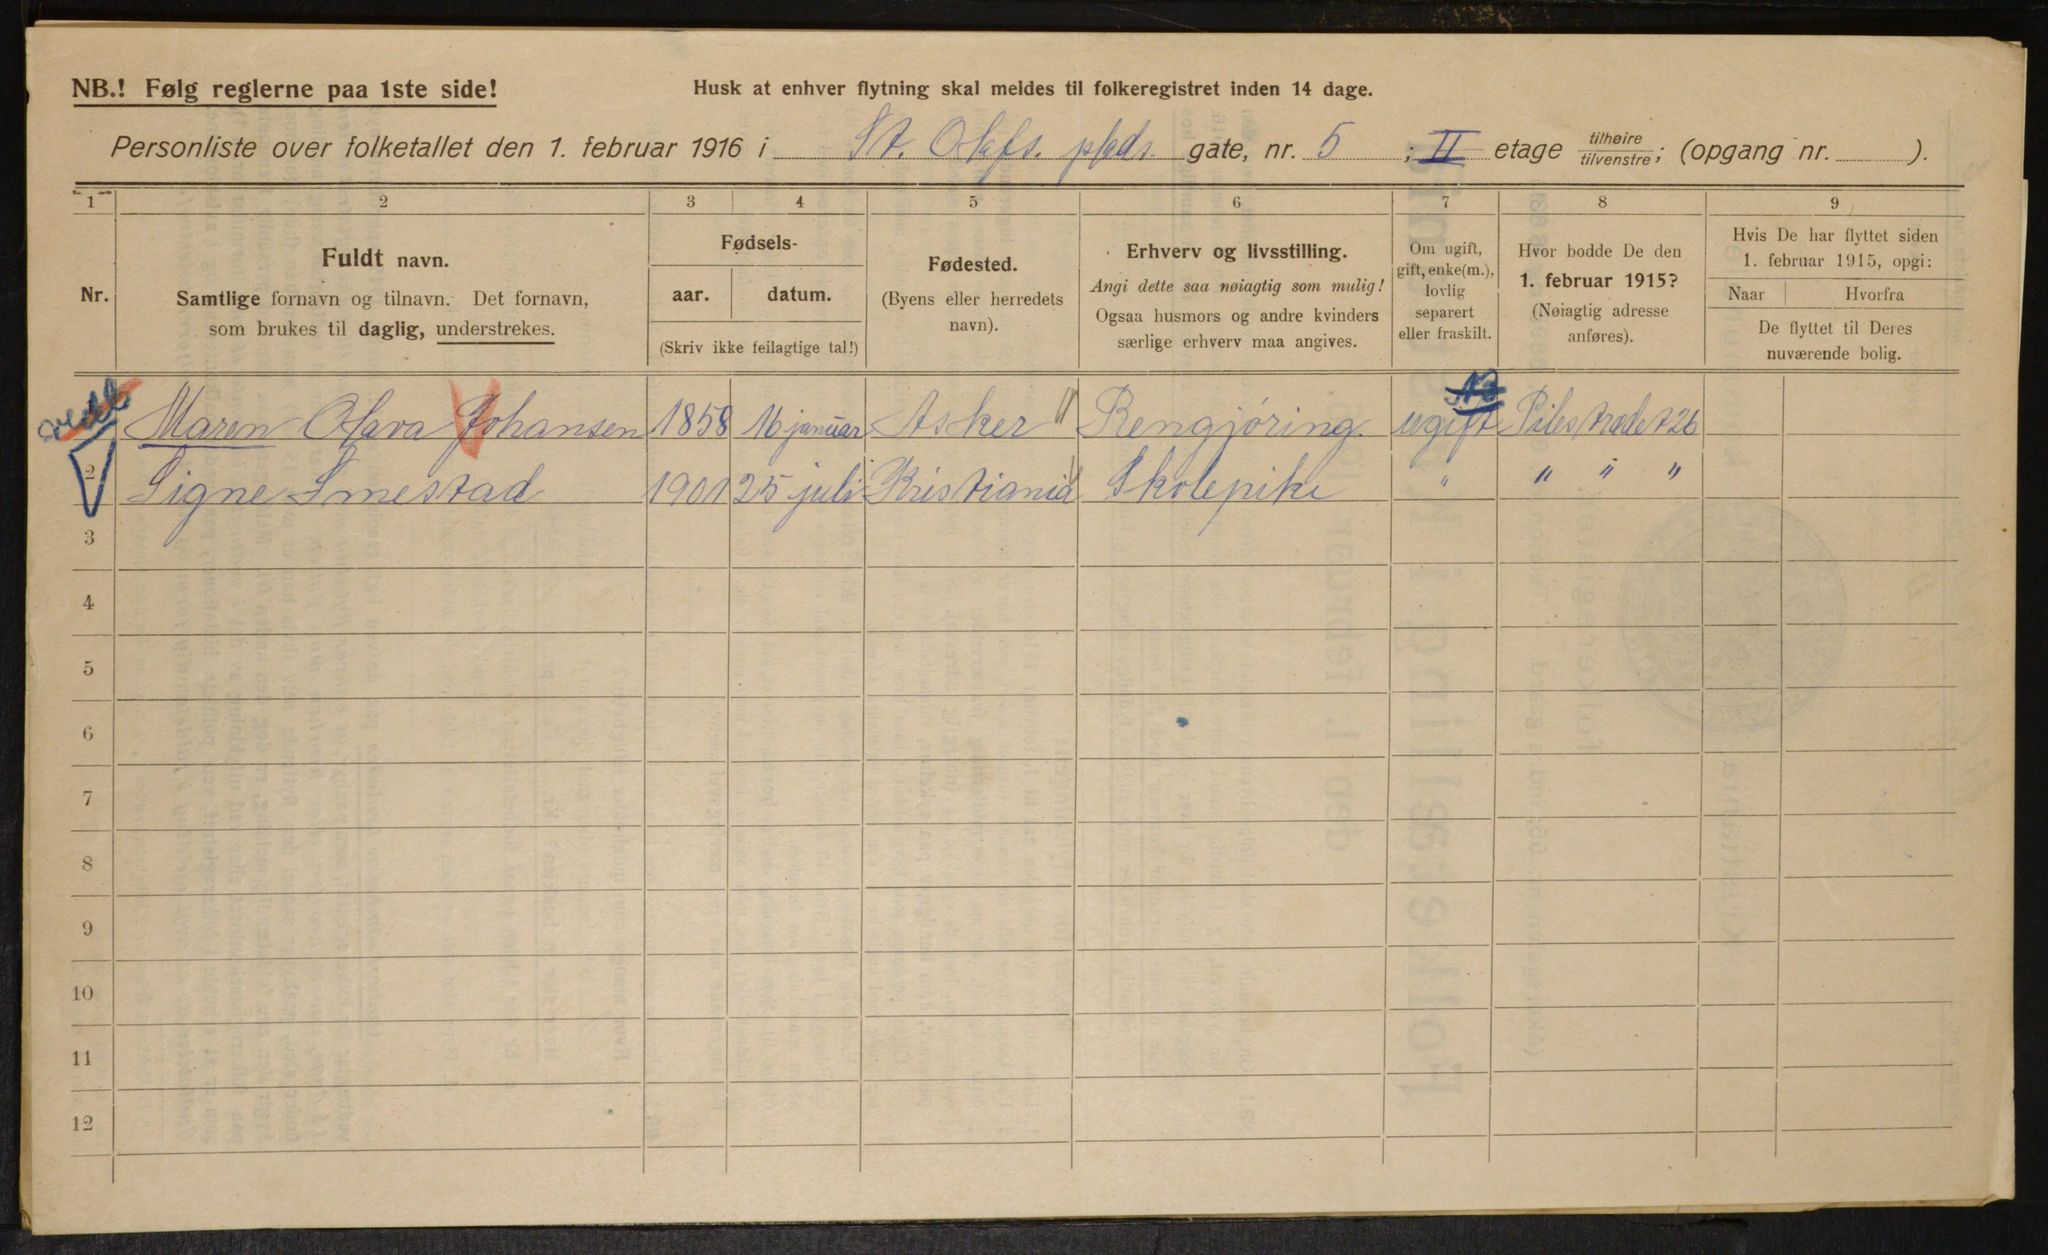 NB.! Følg reglerne paa 1ste side!
Husk at enhver flytning skal meldes til folkeregistret inden 14 dage.
Personliste over folketallet den 1. februar 1916 i St. Olafs. plads. gate, nr. 5 ; II etage tilhøire/tilvenstre; (opgang nr. ).
1 2 3 4 5 6 7 8 9
Nr.
Fuldt navn.
Samtlige fornavn og tilnavn. Det fornavn,
som brukes til daglig, understrekes.
Fødsels-
aar. datum.
(Skriv ikke feilagtige tal!)
Fødested.
(Byens eller herredets
navn).
Erhverv og livsstilling.
Angi dette saa nøiagtig som mulig!
Ogsaa husmors og andre kvinders
særlige erhverv maa angives.
Om ugift,
gift, enke(m.),
lovlig
separert
eller fraskilt.
Hvor bodde De den
1. februar 1915?
(Nøiagtig adresse
anføres).
Hvis De har flyttet siden
1. februar 1915, opgi:
Naar Hvorfra
De flyttet til Deres
nuværende bolig.
Maren Olava Johansen 1858 16 januar Asker Rengjöring. ugift Pilestrædet 26
2 Signe Smestad 1901 25 juli Kristiania Skolepike " " " "
3
4
5
6
7
8
9
10
11
12